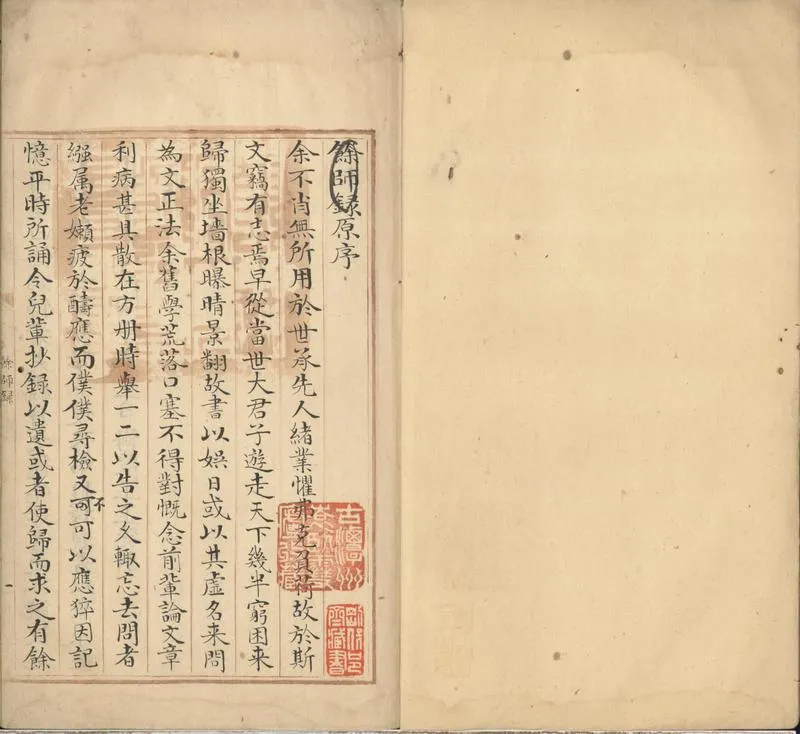 餘師録原序
余不肖無所用於世承先人緒業懼弗克負荷故於斯
文竊有志焉早從當世大君子遊走天下幾半窮困来
歸獨坐墻根曝晴景翻故書以娱日或以其虚名来問
為文正法余舊學荒落口塞不得對慨念前輩論文章
利病甚具散在方册時舉一二以告之夂輙忘去問者
繦属老嬾疲於醻應而僕僕尋檢又可不可以應猝因記
憶平時所誦令兒軰抄録以遺或者使歸而求之有餘
餘師録
古潭州
袁臥雪廬
收藏
藏書